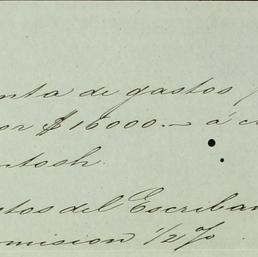 nta de gastos
or $16000.- á c
ntosh.
stos del Escriban
mision 1/2 %